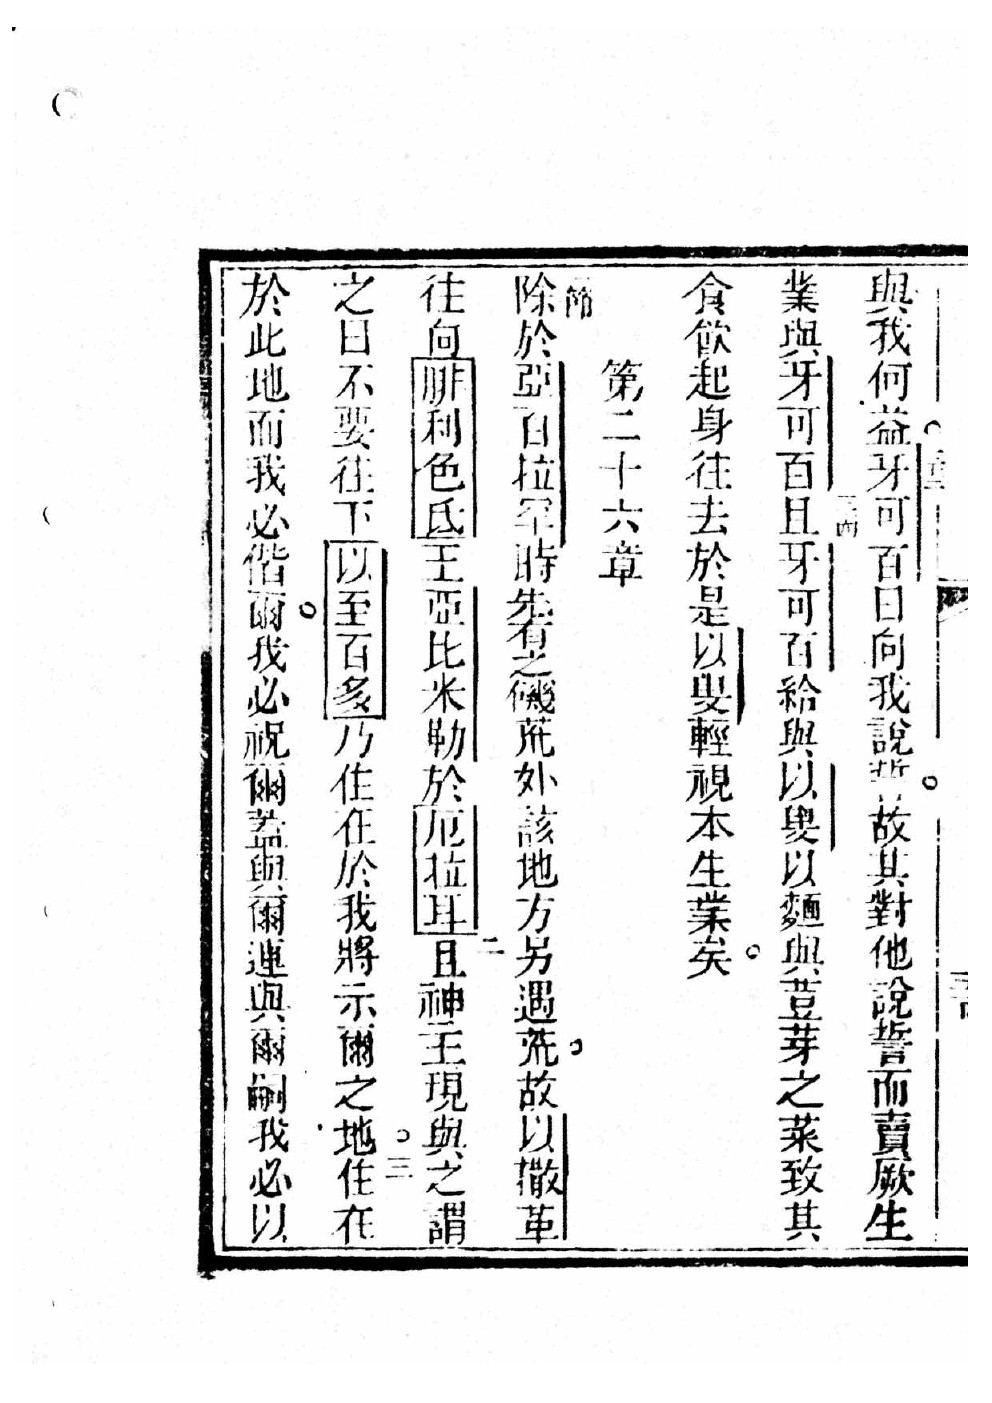 與我何益牙可百曰向我說誓故其對他說誓而賣厥生
業與牙可百且牙可百給與以叟以麵與荳芽之菜致其
食飲起身往去於是以叟輕視本生業矣
第二十六章
一節
除於亞百拉罕時先有之磯荒外該地方另遇荒故以撒革
往向腓利色氐王亞比米勒於厄拉耳二且神主現與之謂
之曰不要往下以至百多乃住在於我將示爾之地三住在
於此地而我必偕爾我必祝爾蓋與爾連與爾嗣我必以